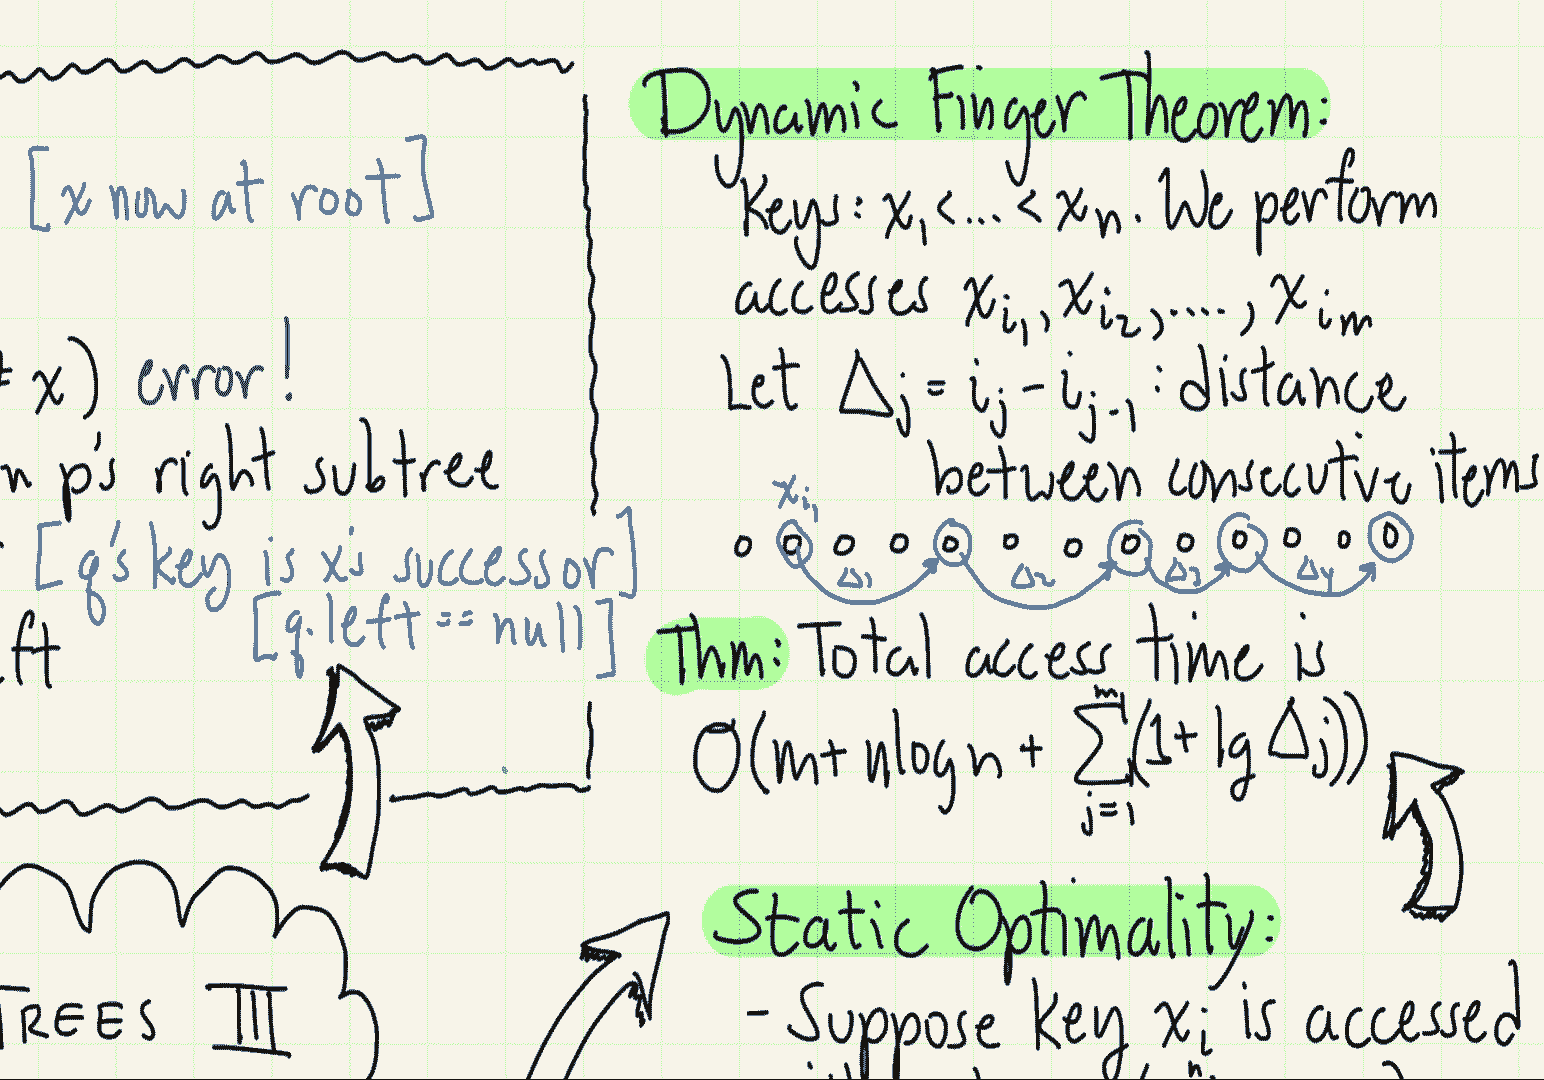 [x now at root]
≠ x) error!
n p's right subtree
[q's key is x's successor]
[q.left == null]
ft
TREES III
Dynamic Finger Theorem:
Keys: x₁<...< xₙ. We perform
accesses x_{i₁}, x_{i₂}, ...., x_{i_m}
Let Δⱼ = iⱼ - i_{j-1} : distance
between consecutive items
x_{i₁}
Δ₁ Δ₂ Δ₃ Δ₄
Thm: Total access time is
O(m + n log n + ∑_{j=1}^{m} (1 + lg Δⱼ))
Static Optimality:
- Suppose key xᵢ is accessed